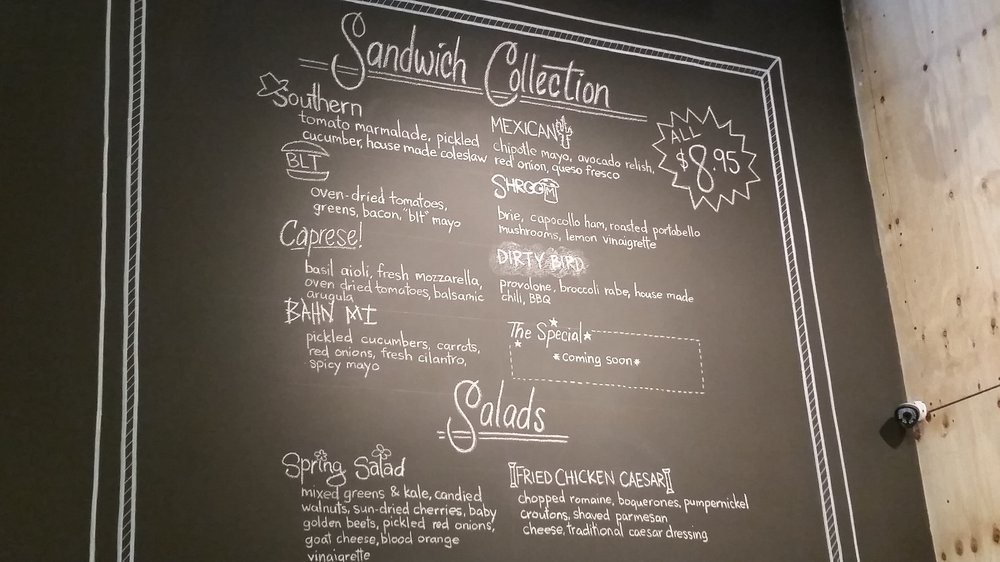 Sandwich Collection
Southern
tomato marmalade, pickled
cucumber, house made coleslaw
BLT
oven-dried tomatoes,
greens, bacon, "blt" mayo
Caprese!
basil aioli, fresh mozzarella,
oven dried tomatoes, balsamic
arugula
BAHN MI
pickled cucumbers, carrots,
red onions, fresh cilantro,
spicy mayo
MEXICAN
chipotle mayo, avocado relish,
red onion, queso fresco
SHROOM
brie, capocollo ham, roasted portabello
mushrooms, lemon vinaigrette
DIRTY BIRD
provolone, broccoli rabe, house made
chili, BBQ
The Special
*coming soon*
ALL
$8.95
Salads
Spring Salad
mixed greens & kale, candied
walnuts, sun-dried cherries, baby
golden beets, pickled red onions,
goat cheese, blood orange
vinaigrette
FRIED CHICKEN CAESAR
chopped romaine, boquerones, pumpernickel
croutons, shaved parmesan
cheese, traditional caesar dressing